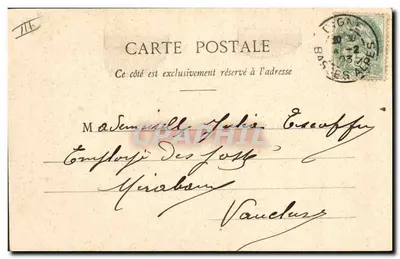 CARTE POSTALE
Ce côté est exclusivement réservé à l'adresse
DIGNE
BASSES ALPES
Mademoiselle Julia Escoffier
Employé des Postes
Mirabeau
Vaucluse